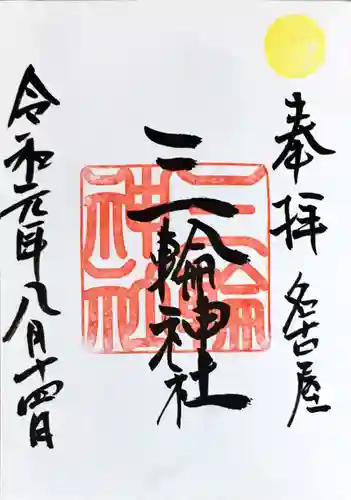 奉拝 名古屋
三輪神社
三輪神社
令和元年八月十四日